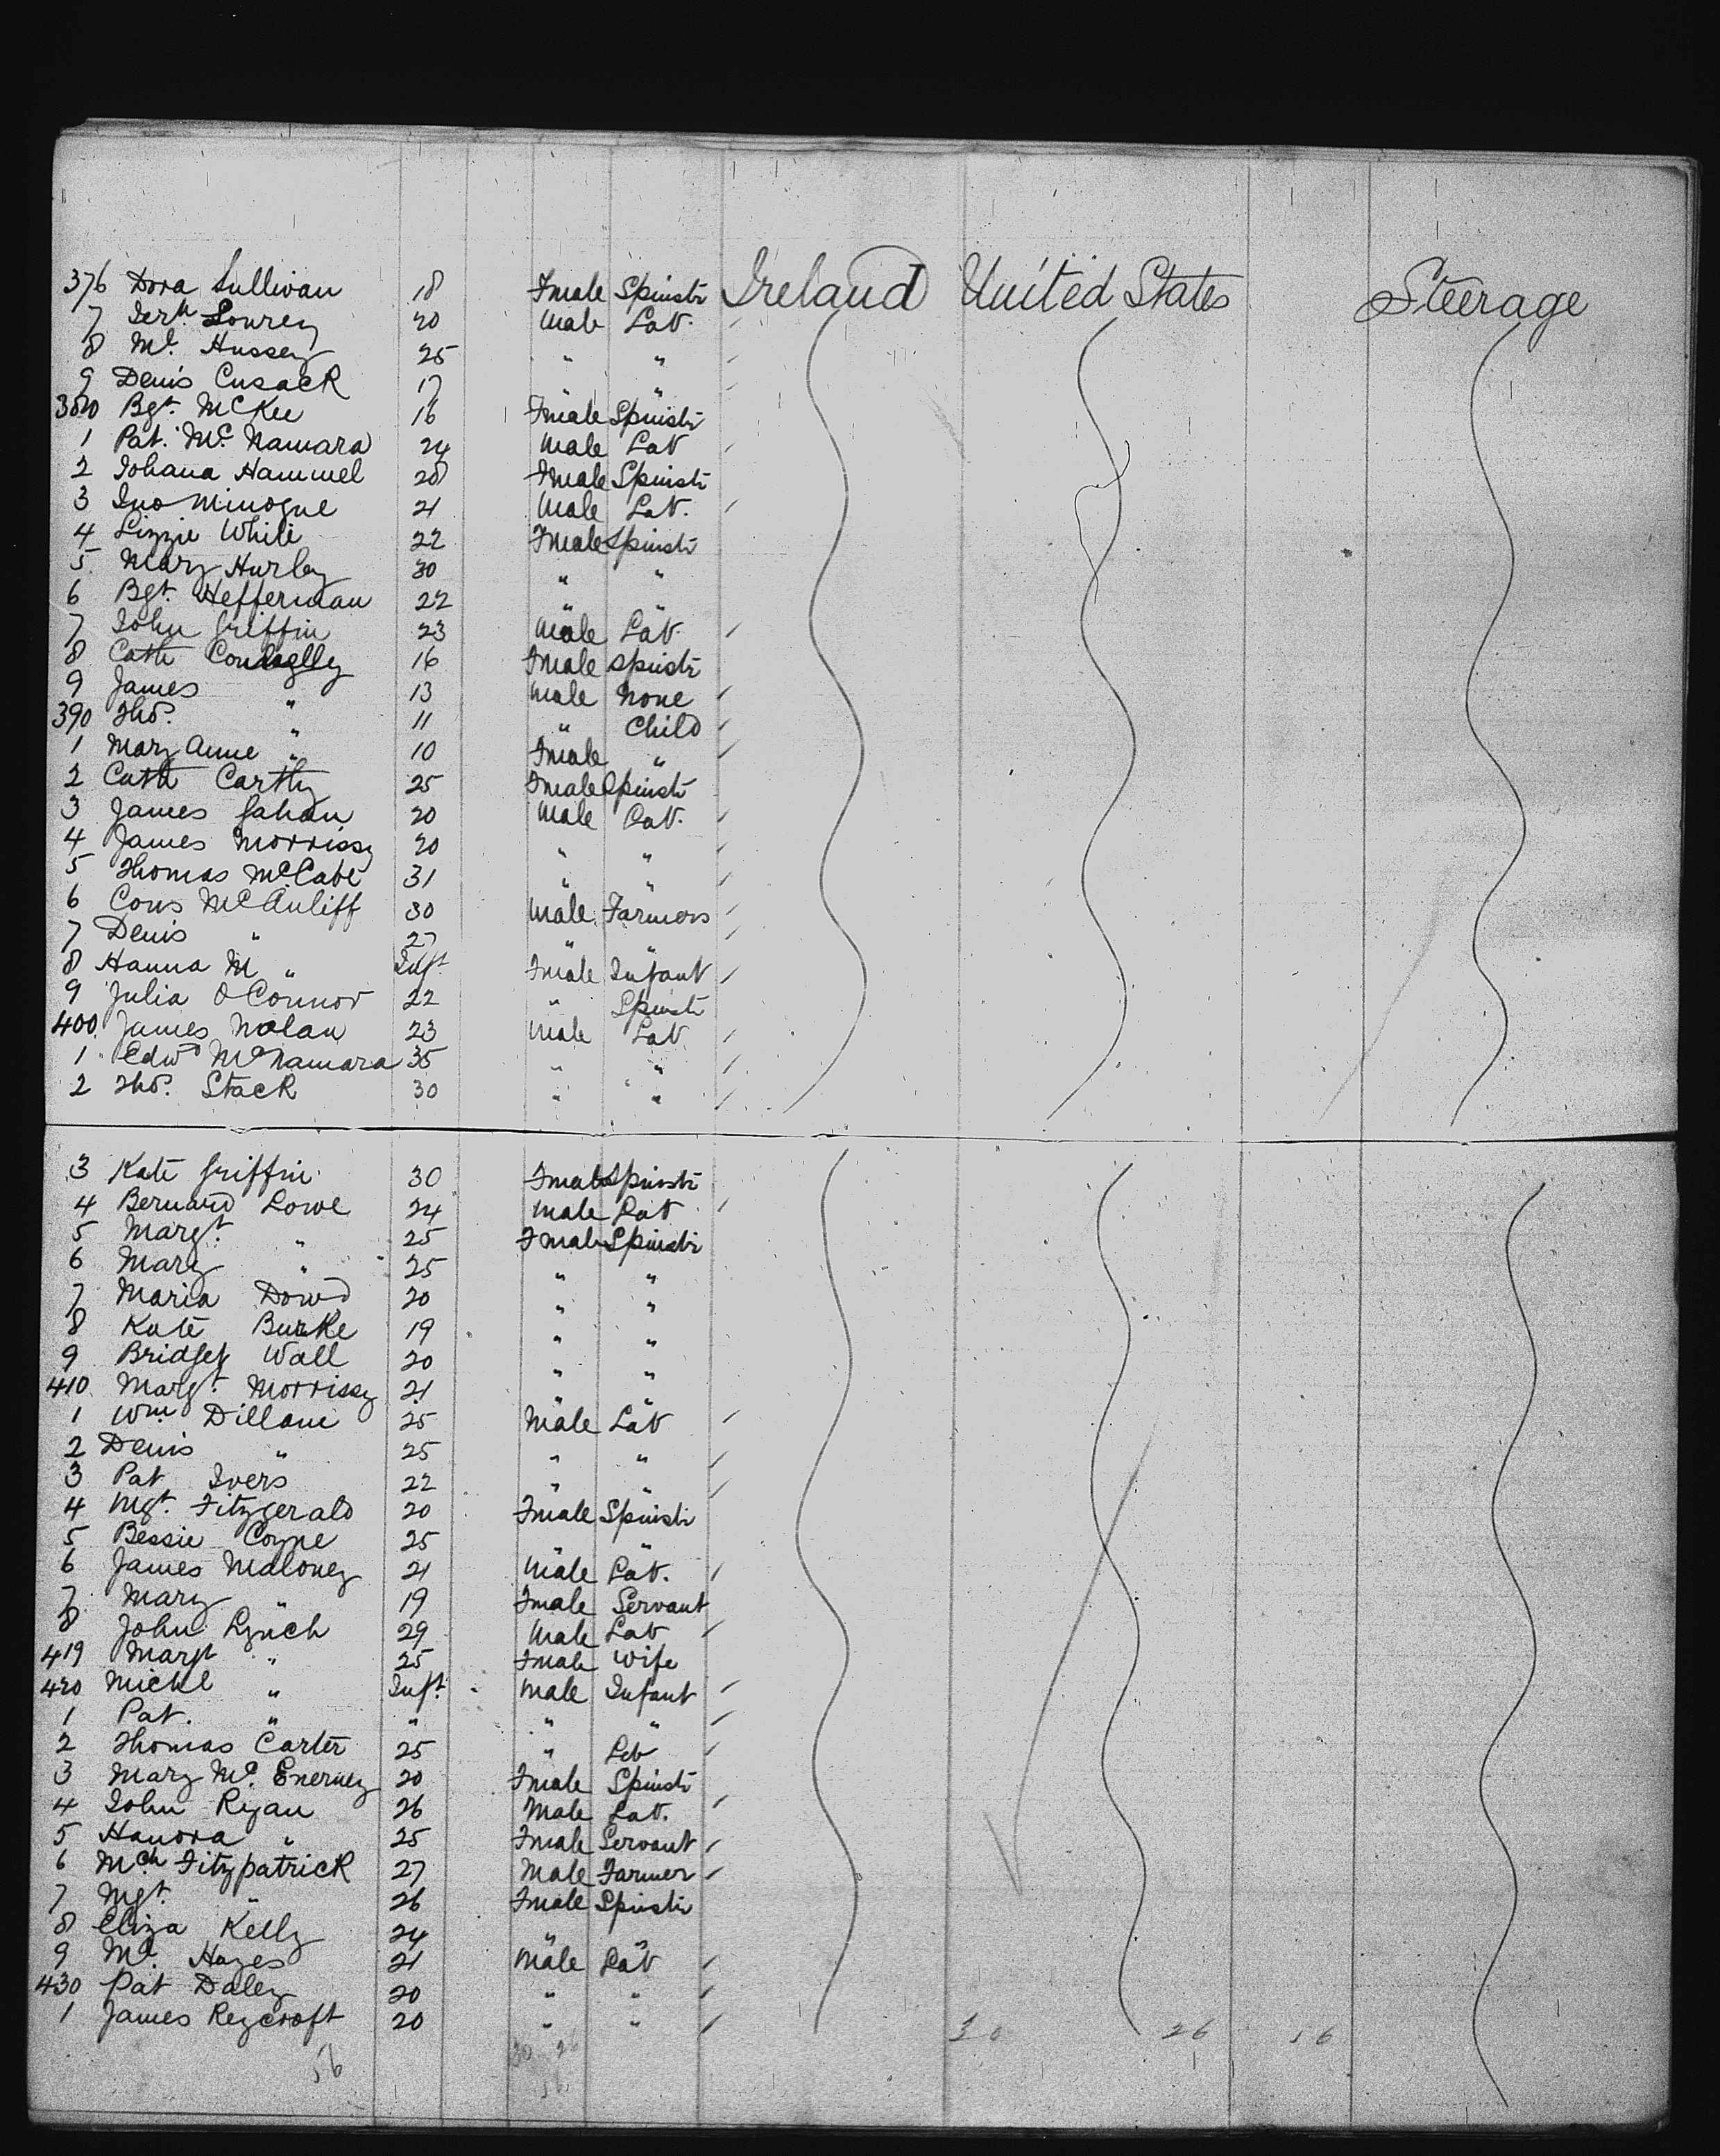 376 Dora Sullivan 18 Fmale Spinstr Ireland United States Steerage
7 Jerh Lowrey 20 Male Lab.
8 Ml. Hussey 25 " "
9 Denis Cusack 17 " "
380 Bgt. McKee 16 Fmale Spinstr
1 Pat. Mc. Namara 24 Male Lab
2 Johana Hammel 28 Fmale Spinstr
3 Jno Minogue 21 Male Lab.
4 Lizzie White 22 Fmale Spinstr
5 Mary Hurley 30 " "
6 Bgt. Hefferman 22 " "
7 John Griffin 23 Male Lab.
8 Cath 16 Fmale Spinstr
9 James " 13 Male None
390 Thos. " 11 " Child
1 Mary Anne " 10 Fmale "
2 Cath Carthy 25 Fmale Spinstr
3 James Gahan 20 Male Lab.
4 James Morrissy 20 " "
5 Thomas McCabe 31 " "
6 Cons McAuliff 30 Male Farmers
7 Denis " 27 " "
8 Hanna M " Inft. Fmale Infant
9 Julia O Connor 22 " Spinstr
400 James Nolan 23 Male Lab
1 Edwd McNamara 35 " "
2 Thos. Stack 30 " "
3 Kate Griffin 30 Fmale Spinstr
4 Bernard Lowe 24 Male Lab
5 Margt. " 25 Fmale Spinstr
6 Mary " 25 " "
7 Maria Dowd 20 " "
8 Kate Burke 19 " "
9 Bridget Wall 20 " "
410 Margt. Morrissy 21 " "
1 Wm Dillane 25 Male Lab
2 Denis " 25 " "
3 Pat Ivers 22 " "
4 Mgt. Fitzgerald 20 Fmale Spinstr
5 Bessie Coyne 25 " "
6 James Maloney 21 Male Lab.
7 Mary " 19 Fmale Servant
8 John Lynch 29 Male Lab
419 Margt " 25 Fmale Wife
420 Michl " Inft. Male Infant
1 Pat. " " " "
2 Thomas Carter 25 " Lab
3 Mary Mc. Enerney 20 Fmale Spinstr
4 John Ryan 26 Male Lab.
5 Hanora " 25 Fmale Servant
6 Mch Fitzpatrick 27 Male Farmer
7 Mgt. " 26 Fmale Spinstr
8 Eliza Kelly 24 " "
9 Ml. Hayes 21 Male Lab
430 Pat Daley 20 " "
1 James Reycroft 20 " "
30 26 56
56 30 26
56